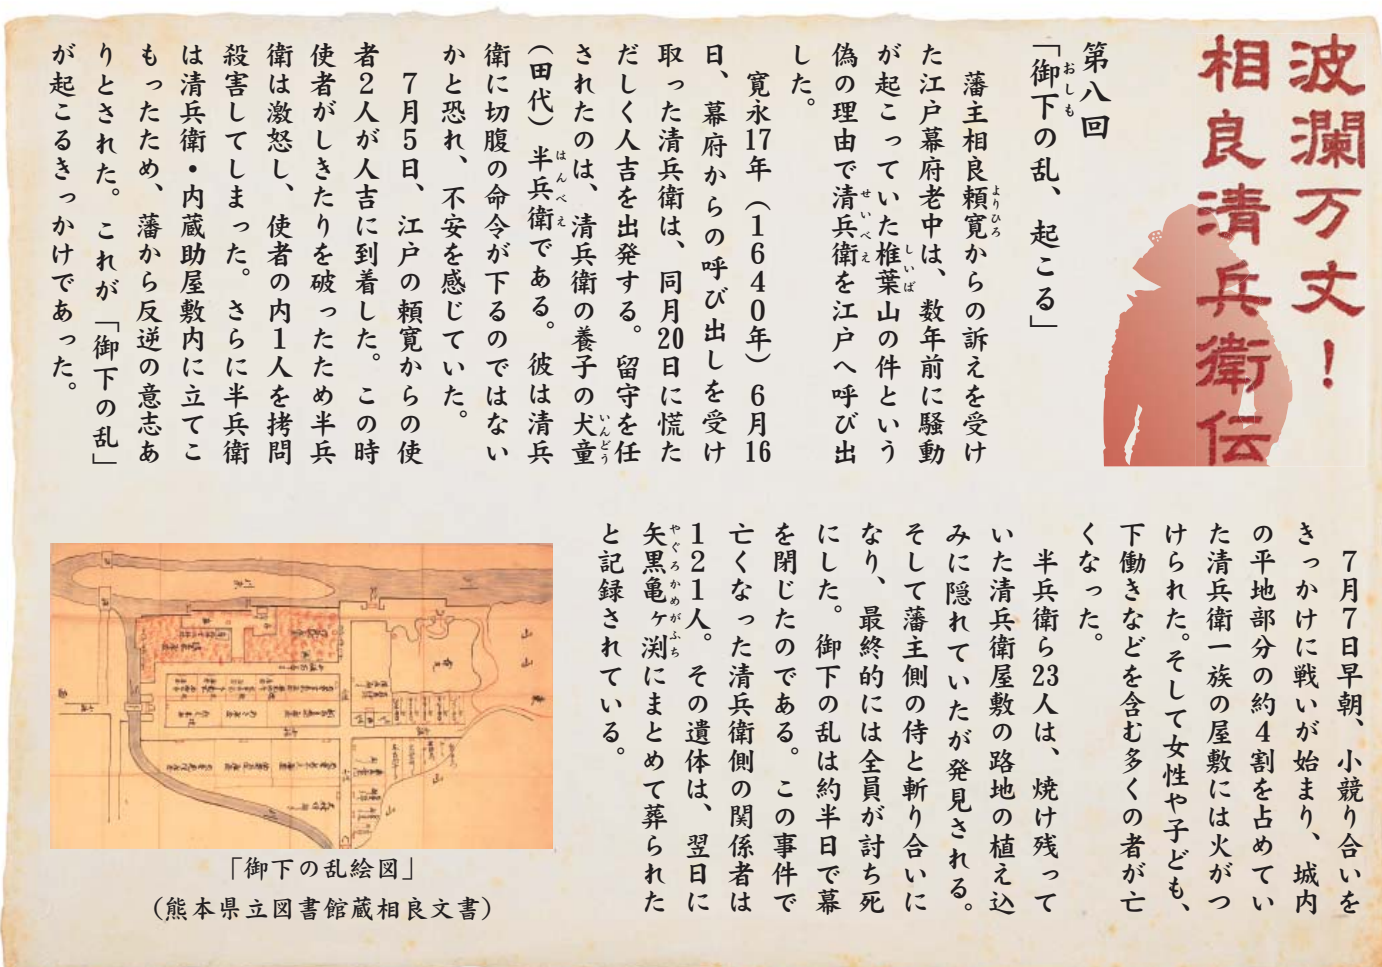 波瀾万丈！
相良清兵衛伝
第八回
「御下の乱、起こる」
おしも
　藩主相良頼寛からの訴えを受け
よりひろ
た江戸幕府老中は、数年前に騒動
が起こっていた椎葉山の件という
しいば
偽の理由で清兵衛を江戸へ呼び出
せいべえ
した。
　寛永17年（1640年）6月16
日、幕府からの呼び出しを受け
取った清兵衛は、同月20日に慌た
だしく人吉を出発する。留守を任
されたのは、清兵衛の養子の犬童
いんどう
（田代）半兵衛である。彼は清兵
はんべえ
衛に切腹の命令が下るのではない
かと恐れ、不安を感じていた。
　7月5日、江戸の頼寛からの使
者2人が人吉に到着した。この時
使者がしきたりを破ったため半兵
衛は激怒し、使者の内1人を拷問
殺害してしまった。さらに半兵衛
は清兵衛・内蔵助屋敷内に立てこ
もったため、藩から反逆の意志あ
りとされた。これが「御下の乱」
が起こるきっかけであった。
　7月7日早朝、小競り合いを
きっかけに戦いが始まり、城内
の平地部分の約4割を占めてい
た清兵衛一族の屋敷には火がつ
けられた。そして女性や子ども、
下働きなどを含む多くの者が亡
くなった。
　半兵衛ら23人は、焼け残って
いた清兵衛屋敷の路地の植え込
みに隠れていたが発見される。
そして藩主側の侍と斬り合いに
なり、最終的には全員が討ち死
にした。御下の乱は約半日で幕
を閉じたのである。この事件で
亡くなった清兵衛側の関係者は
121人。その遺体は、翌日に
矢黒亀ヶ渕にまとめて葬られた
やぐろかめがふち
と記録されている。
「御下の乱絵図」
（熊本県立図書館蔵相良文書）